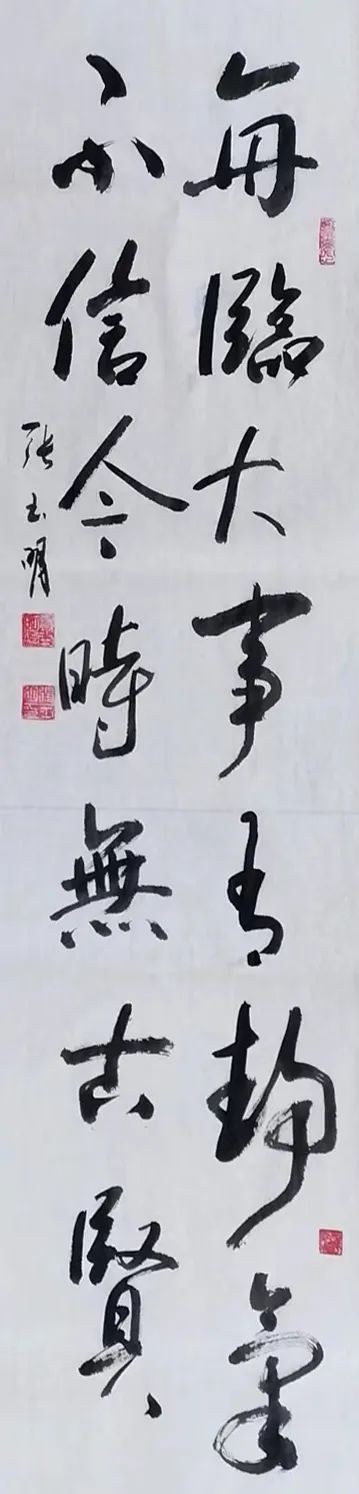 每臨大事有靜氣
不信今時無古賢
張玉明